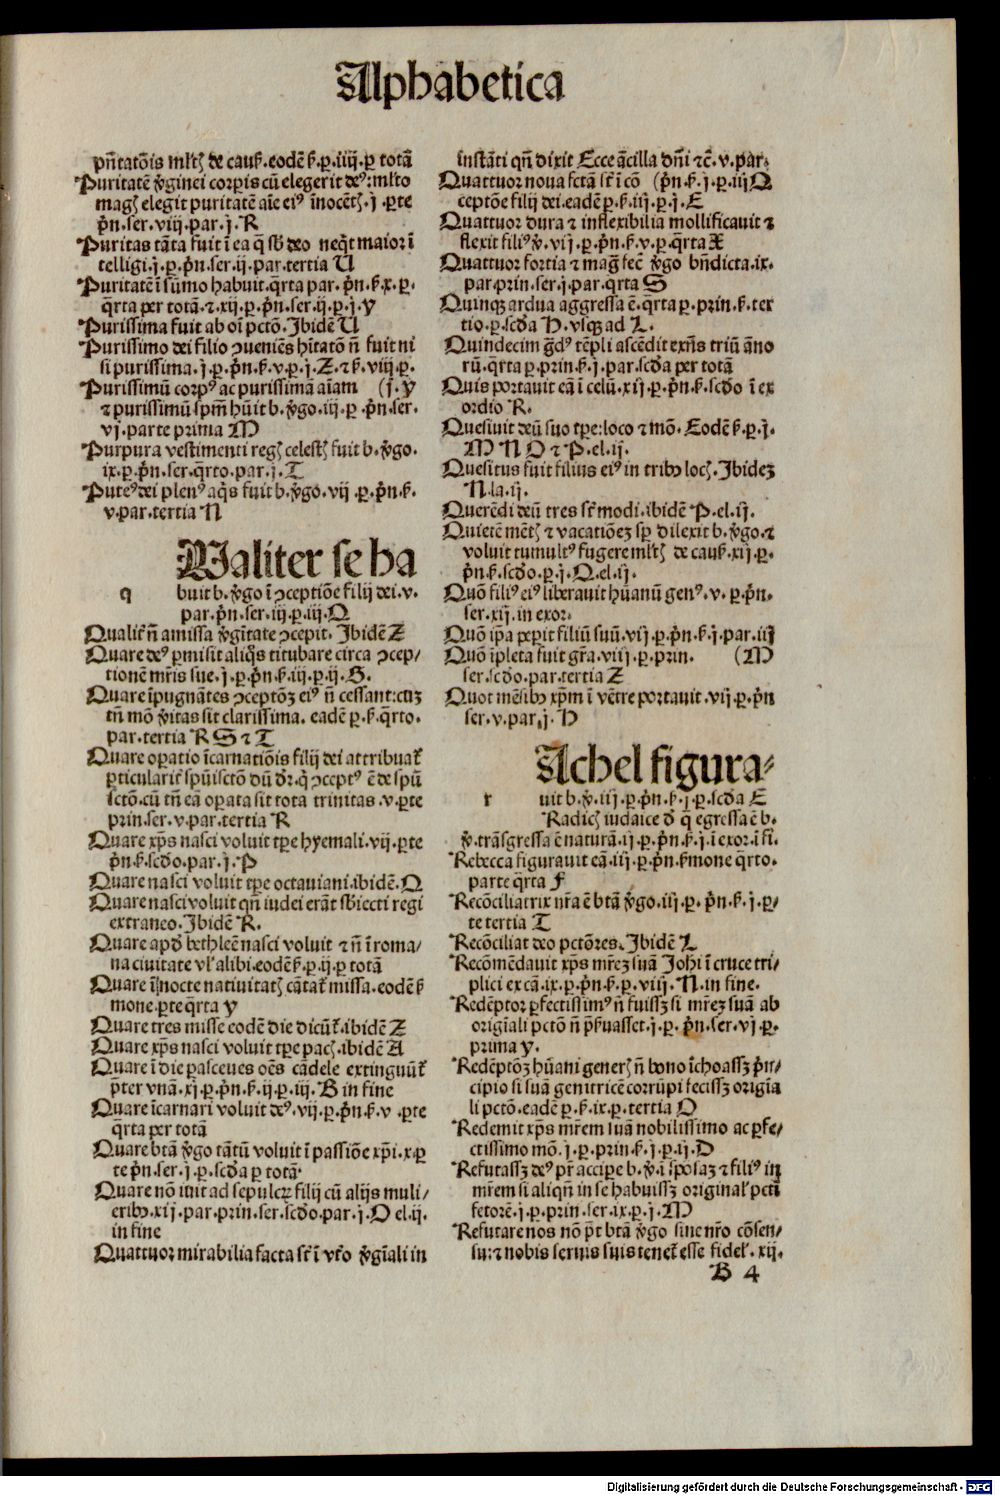 Alphabetica
pñtatõis mltꝭ de cauß.eodẽ ß.p̱.iiij.p̱ totã
Puritatẽ ṽginei corpis cũ elegerit de⁹:mlto
magꝭ elegit puritatẽ aĩe ei⁹ ĩnocẽtꝭ.j.p̱te
p̃n.ser.viij.par.j.R
Puritas tãta fuit ĩ ea q̃ sb̃ deo neq̃t maior ĩ
telligi.j.p̱.p̃n.ser.ij.par.tertia U
Puritatẽ ĩ sũmo habuit.q̃rta par.p̃n.ß.x.p̱.
q̃rta per totã.⁊.xij.p̱.p̃n.ser.ij.p̱.j.y
Purissima fuit ab oĩ pctõ.Ibidẽ U
Purissimo dei filio ꝯueniẽs hĩtatõ ñ fuit ni
si purissima.j.p̱.p̃n.ß.v.p̱.j.Z.⁊ ß.viij.p̱.
Purissimũ corp⁹ ac purissimã aĩam (j.y
⁊ purissimũ spm̃ hũit b.ṽgo.iij.p̱ p̃n.ser.
vj.parte prima M
Purpura vestimenti regꝭ celestꝭ fuit b.ṽgo.
ix.p̱.p̃n.ser.q̃rto.par.j.T
Pute⁹ dei plen⁹ aq̃s fuit b.ṽgo.vij.p̱.p̃n.ß.
v.par.tertia N
Qaliter se ha
q buit b.ṽgo ĩ ꝯceptiõe filij dei.v.
par.p̃n.ser.iij.p̱.iij.Q
Qualit̃ ñ amissa ṽgĩtate ꝯcepit. Ibidẽ Z
Quare de⁹ p̱misit aliq̃s titubare circa ꝯcep-
tionẽ mr̃is sue.j.p̱.p̃n.ß.iij.p̱.ij.G.
Quare ĩpugnãtes ꝯceptõꝫ ei⁹ ñ cessant:cuꝫ
tñ mõ ṽitas sit clarissima. eadẽ p̱.ß.q̃rto.
par.tertia R S ⁊ T
Quare op̱atio ĩcarnatiõis filij dei attribuat̃
p̱ticularit̃ spũisctõ dũ dr̃.q̃ ꝯcept⁹ ẽ de spũ
sctõ.cũ tñ eã op̱ata sit tota trinitas.v.p̱te
prin.ser.v.par.tertia R
Quare xp̃s nasci voluit tp̱e hyemali.vij.p̱te
p̃n.ß.scd̃o.par.j.P
Quare nasci voluit tp̱e octauiani.ibidẽ.Q
Quare nasci voluit qñ iudei erãt sb̃iecti regi
extraneo.Ibidẽ R.
Quare apd̃ bethleẽ nasci voluit ⁊ ñ ĩ roma/
na ciuitate vl̃ alibi.eodẽ ß.p̱.ij.p̱ totã
Quare ĩ nocte natiuitatꝭ cãtat̃ missa.eodẽ ß
mone.p̱te q̃rta y
Quare tres misse eodẽ die dicũt̃.ibidẽ Z
Quare xp̃s nasci voluit tp̱e pacꝭ.ibidẽ A
Quare ĩ die pasceues oẽs cãdele extinguũt̃
p̃ter vnã.xj.p̱.p̃n.ß.ij.p̱.iij.B in fine
Quare ĩcarnari voluit de⁹.vij.p̱.p̃n.ß.v.p̱te
q̃rta per totã
Quare btã ṽgo tãtũ voluit ĩ passiõe xp̃i.x.p̱
te p̃n.ser.j.p̱.scd̃a p̱ totã
Quare nõ iuit ad sepulcꝝ filij cũ alijs muli/
erib⁹.xij.par.prin.ser.scd̃o.par.j.O el.ij.
in fine
Quattuor mirabilia facta st̃ ĩ vt̃o ṽgĩali in
instãti qñ dixit Ecce ãcilla dñi ⁊c̃.v.par.
Quattuor noua fctã st̃ ĩ cõ (p̃n.ß.j.p̱.iij Q
ceptõe filij dei.eadẽ p̱.ß.iij.p̱.j.E
Quattuor dura ⁊ inflexibilia mollificauit ⁊
flexit fili⁹ ṽ.vij.p̱.p̃n.ß.v.p̱.q̃rta X
Quattuor fortia ⁊ mag̃ fec̃ ṽgo bñdicta.ix.
par.prin.ser.j.par.q̃rta S
Quinqꝫ ardua aggressa ẽ.q̃rta p̱.prin.ß.ter
tio.p̱.scd̃a H.vsqꝫ ad L.
Quindecim g̃d⁹ tẽpli ascẽdit exñs triũ ãno
rũ.q̃rta p̱.prin.ß.j.par.scd̃a per totã
Quis portauit eã ĩ celũ.xij.p̱.p̃n.ß.scd̃o ĩ ex
ordio R.
Quesiuit deũ suo tp̱e:loco ⁊ mõ. Eodẽ ß.p̱.j.
M N O ⁊ P.el.ij.
Quesitus fuit filius ei⁹ in trib⁹ locꝭ.Ibideꝫ
N.la.ij.
Querẽdi deũ tres st̃ modi.ibidẽ P.el.ij.
Quietẽ mẽtꝭ ⁊ vacatiõeꝫ sp̱ dilexit b.ṽgo.⁊
voluit tumult⁹ fugere mltꝭ de cauß.xij.p̱.
p̃n.ß.scd̃o.p̱.j.Q.el.ij.
Quõ fili⁹ ei⁹ liberauit hũanũ gen⁹.v.p̱.p̃n.
ser.xij.in exor.
Quõ ip̃a pep̱it filiũ suũ.vij.p̱.p̃n.ß.j.par.iij
Quõ ĩpleta fuit gr̃a.viij.p̱.prin. (M
ser.scd̃o.par.tertia Z
Quot mẽsib⁹ xp̃m ĩ vẽtre portauit.vij.p̱.p̃n
ser.v.par.j.H
Achel figura-
r uit b.ṽ.iij.p̱.p̃n.ß.j.p̱.scd̃a E
Radicꝭ iudaice d̃ q̃ egressa ẽ b.
ṽ.trãsgressa ẽ naturã.ij.p̱.p̃n.ß.j.ĩ exor.ĩ fi.
Rebecca figurauit eã.iij.p̱.p̃n.ßmone q̃rto.
parte q̃rta F
Recõciliatrix nr̃a ẽ btã ṽgo.iij.p̱.p̃n.ß.j.p̱/
te tertia T
Recõciliat deo pctõres.Ibidẽ L
Recõmẽdauit xp̃s mr̃eꝫ suã Johĩ ĩ cruce tri-
plici ex cã.ix.p̱.p̃n.ß.p̱.viij.N.in fine.
Redẽptor p̱fectissim⁹ ñ fuissꝫ si mr̃eꝫ suã ab
origĩali pctõ ñ p̃ßuasset.j.p̱.p̃n.ser.vj.p̱.
prima y.
Redẽptõꝫ hũani generꝭ ñ bono ĩchoassꝫ p̃n/
cipio si suã genitricẽ corrũpi fecissꝫ origĩa
li pctõ.eadẽ p̱.ß.ix.p̱.tertia O
Redemit xp̃s mr̃em suã nobilissimo ac p̱fe/
ctissimo mõ.j.p̱.prin.ß.j.p̱.ij.D
Refutassꝫ de⁹ pr̃ accip̱e b.ṽ.ĩ sp̃osaꝫ ⁊ fili⁹ in
mr̃em si aliqñ in se habuissꝫ original̃ pcti
fetorẽ.j.p̱.prin.ser.ix.p̱.j.M
Refutare nos nõ p̃t btã ṽgo sine nr̃o cõsen/
su:⁊ nobis seruis suis tenet̃ esse fidel̃.xij.
B 4
Digitalisierung gefördert durch die Deutsche Forschungsgemeinschaft - DFG